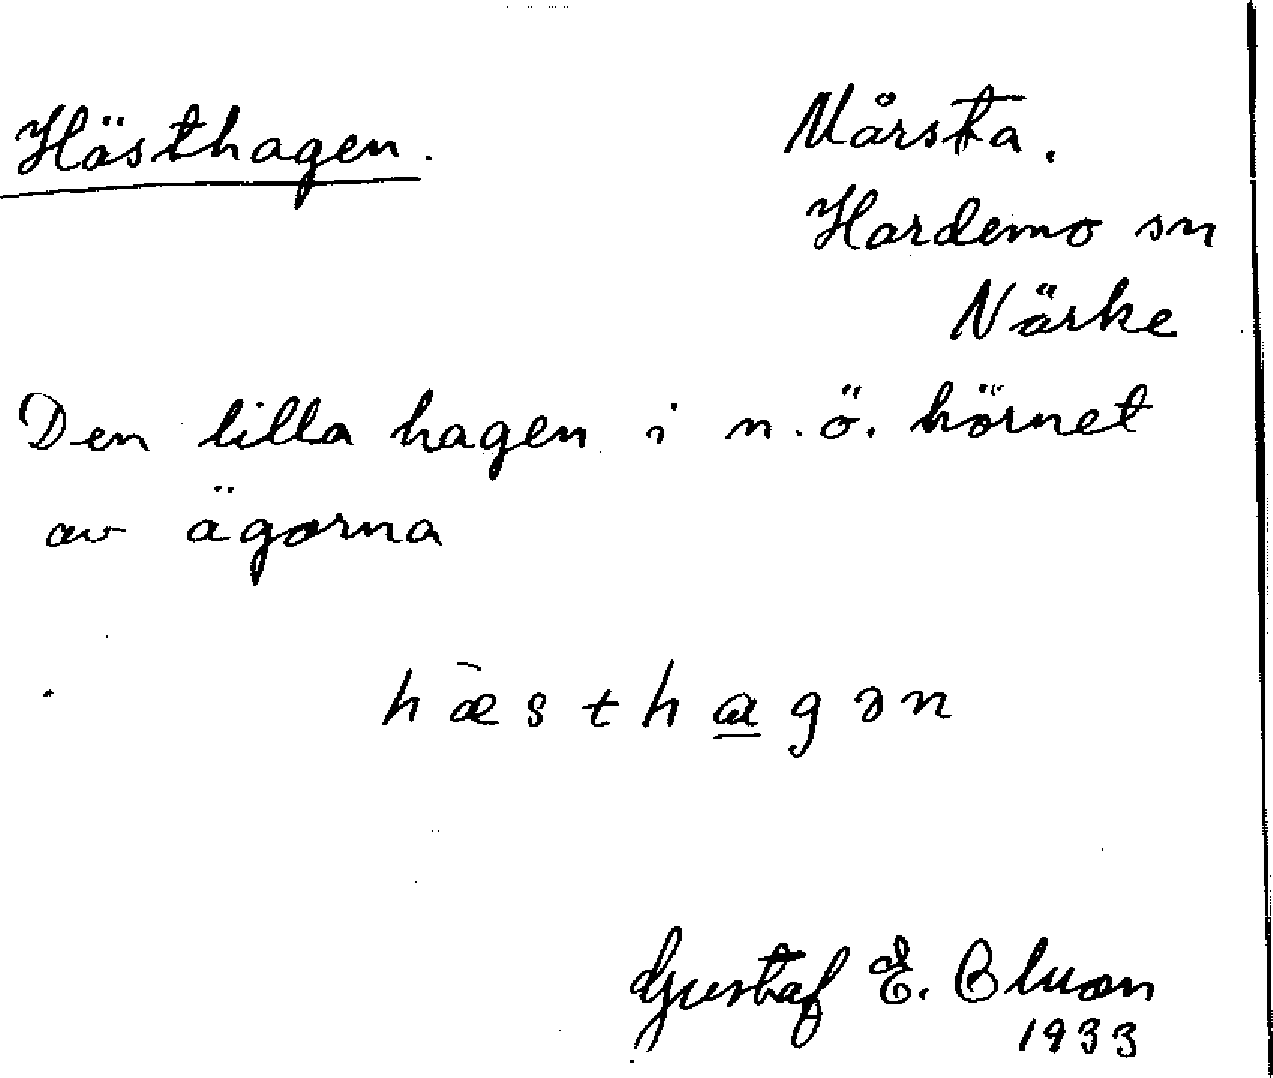 Hästhagen.
Mårsta.
Hardemo sn
Närke
Den lilla hagen i n.ö. hörnet
av ägorna
hæ̀stha̲gən
Gustaf E. Bluon
1933